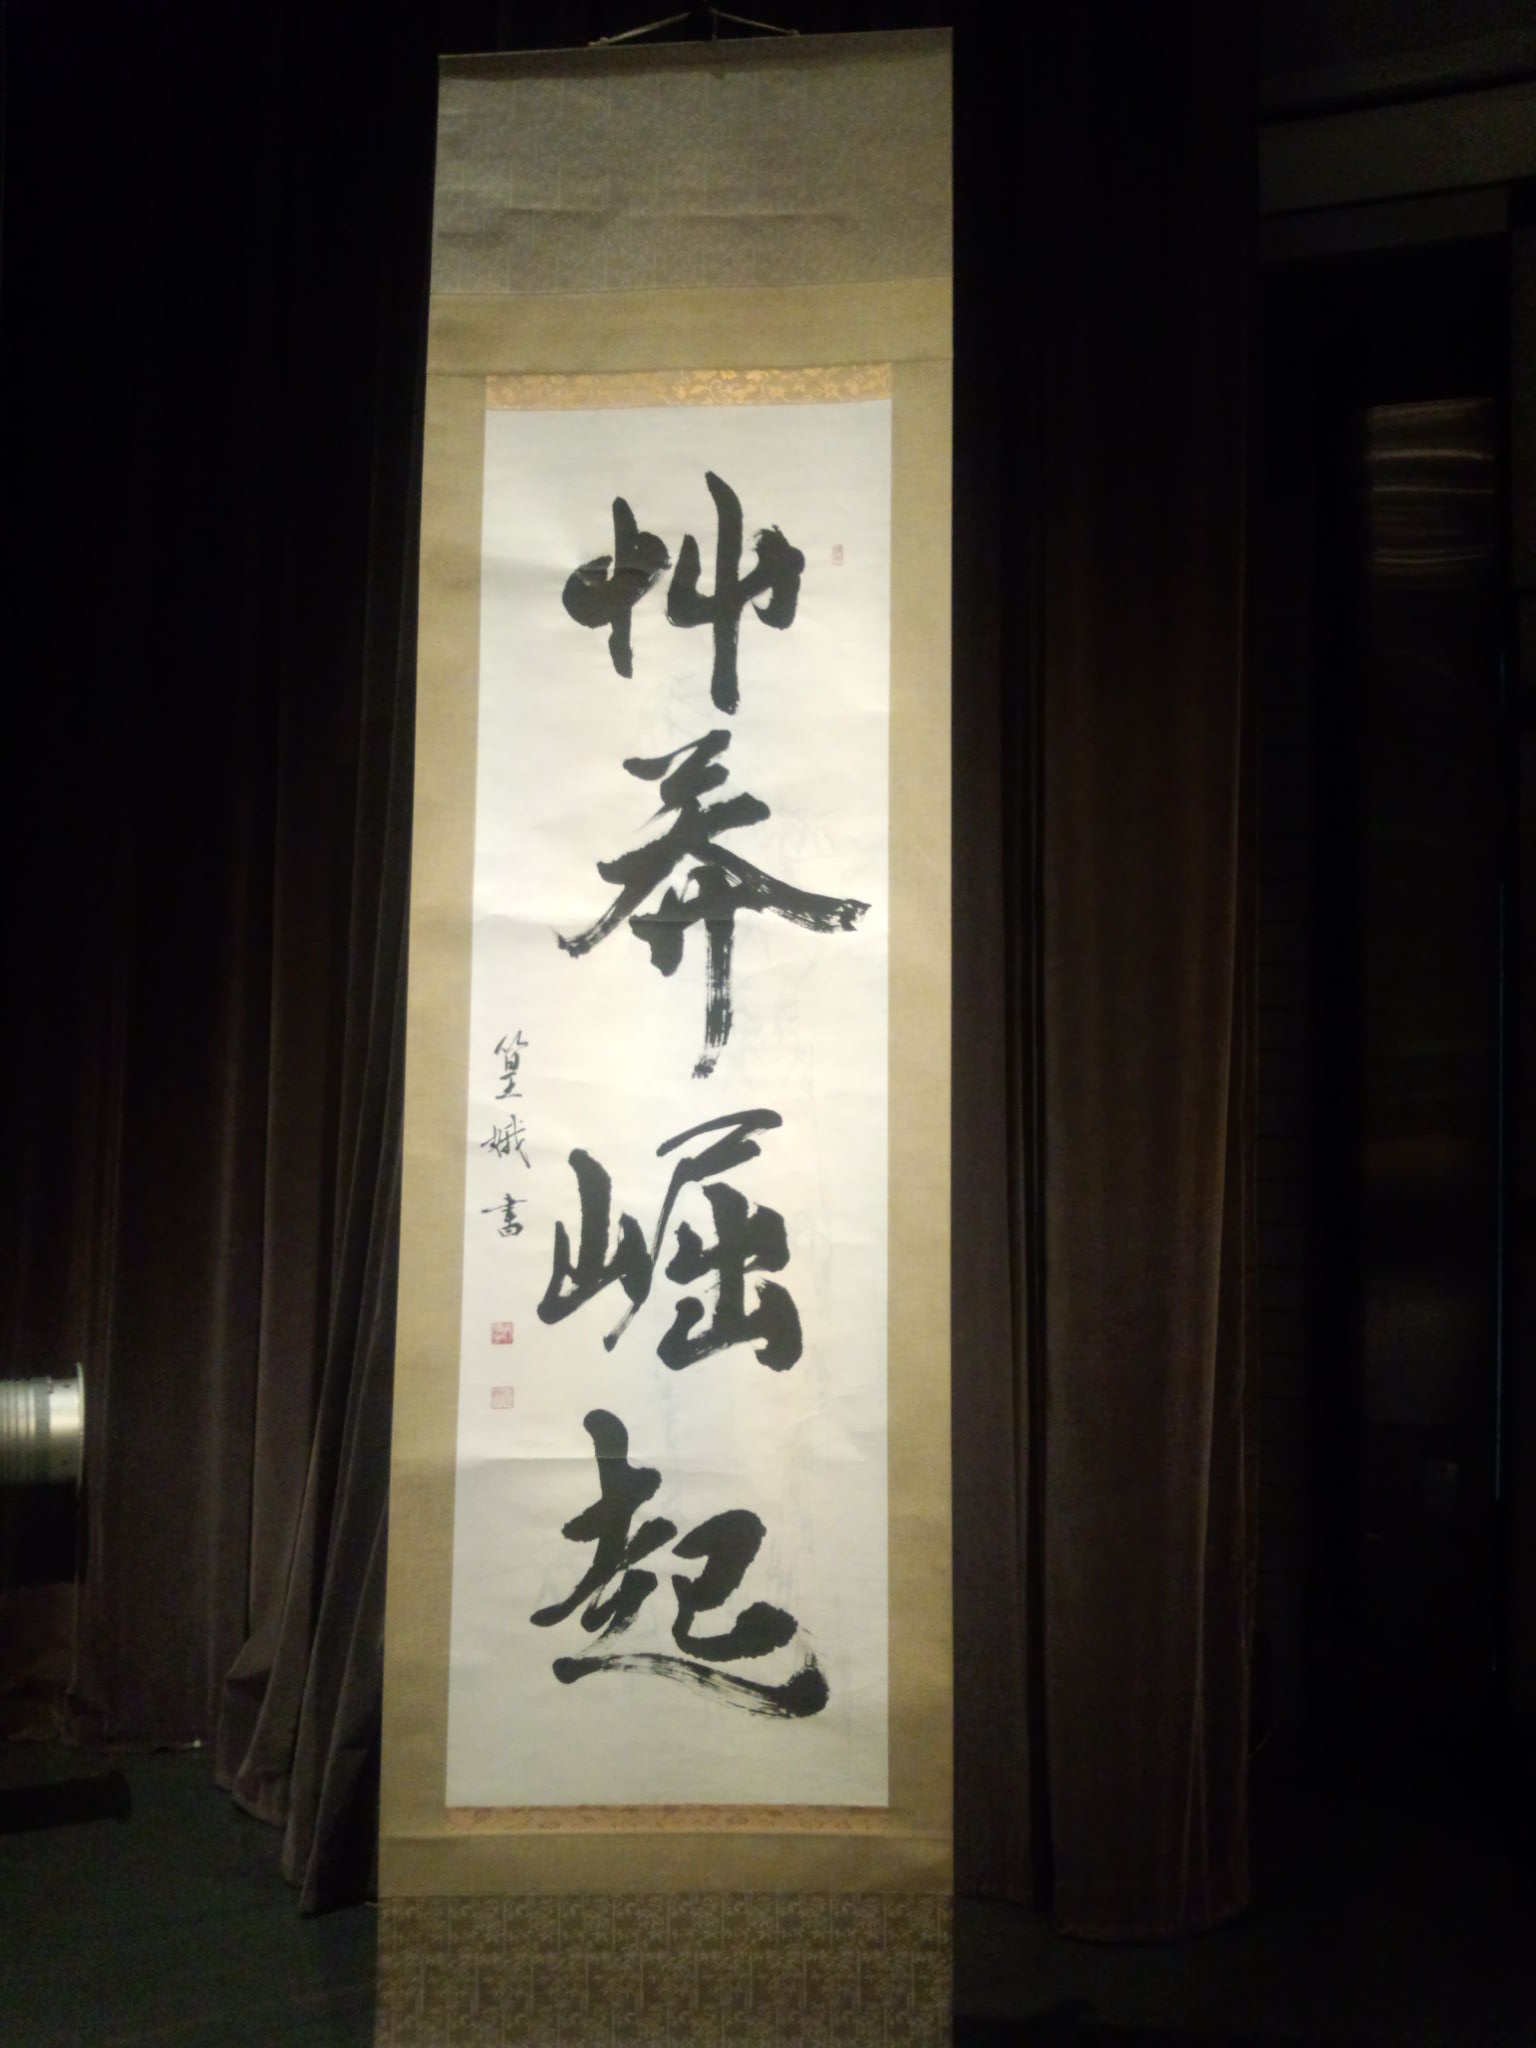 艸莽崛起
篁峨書